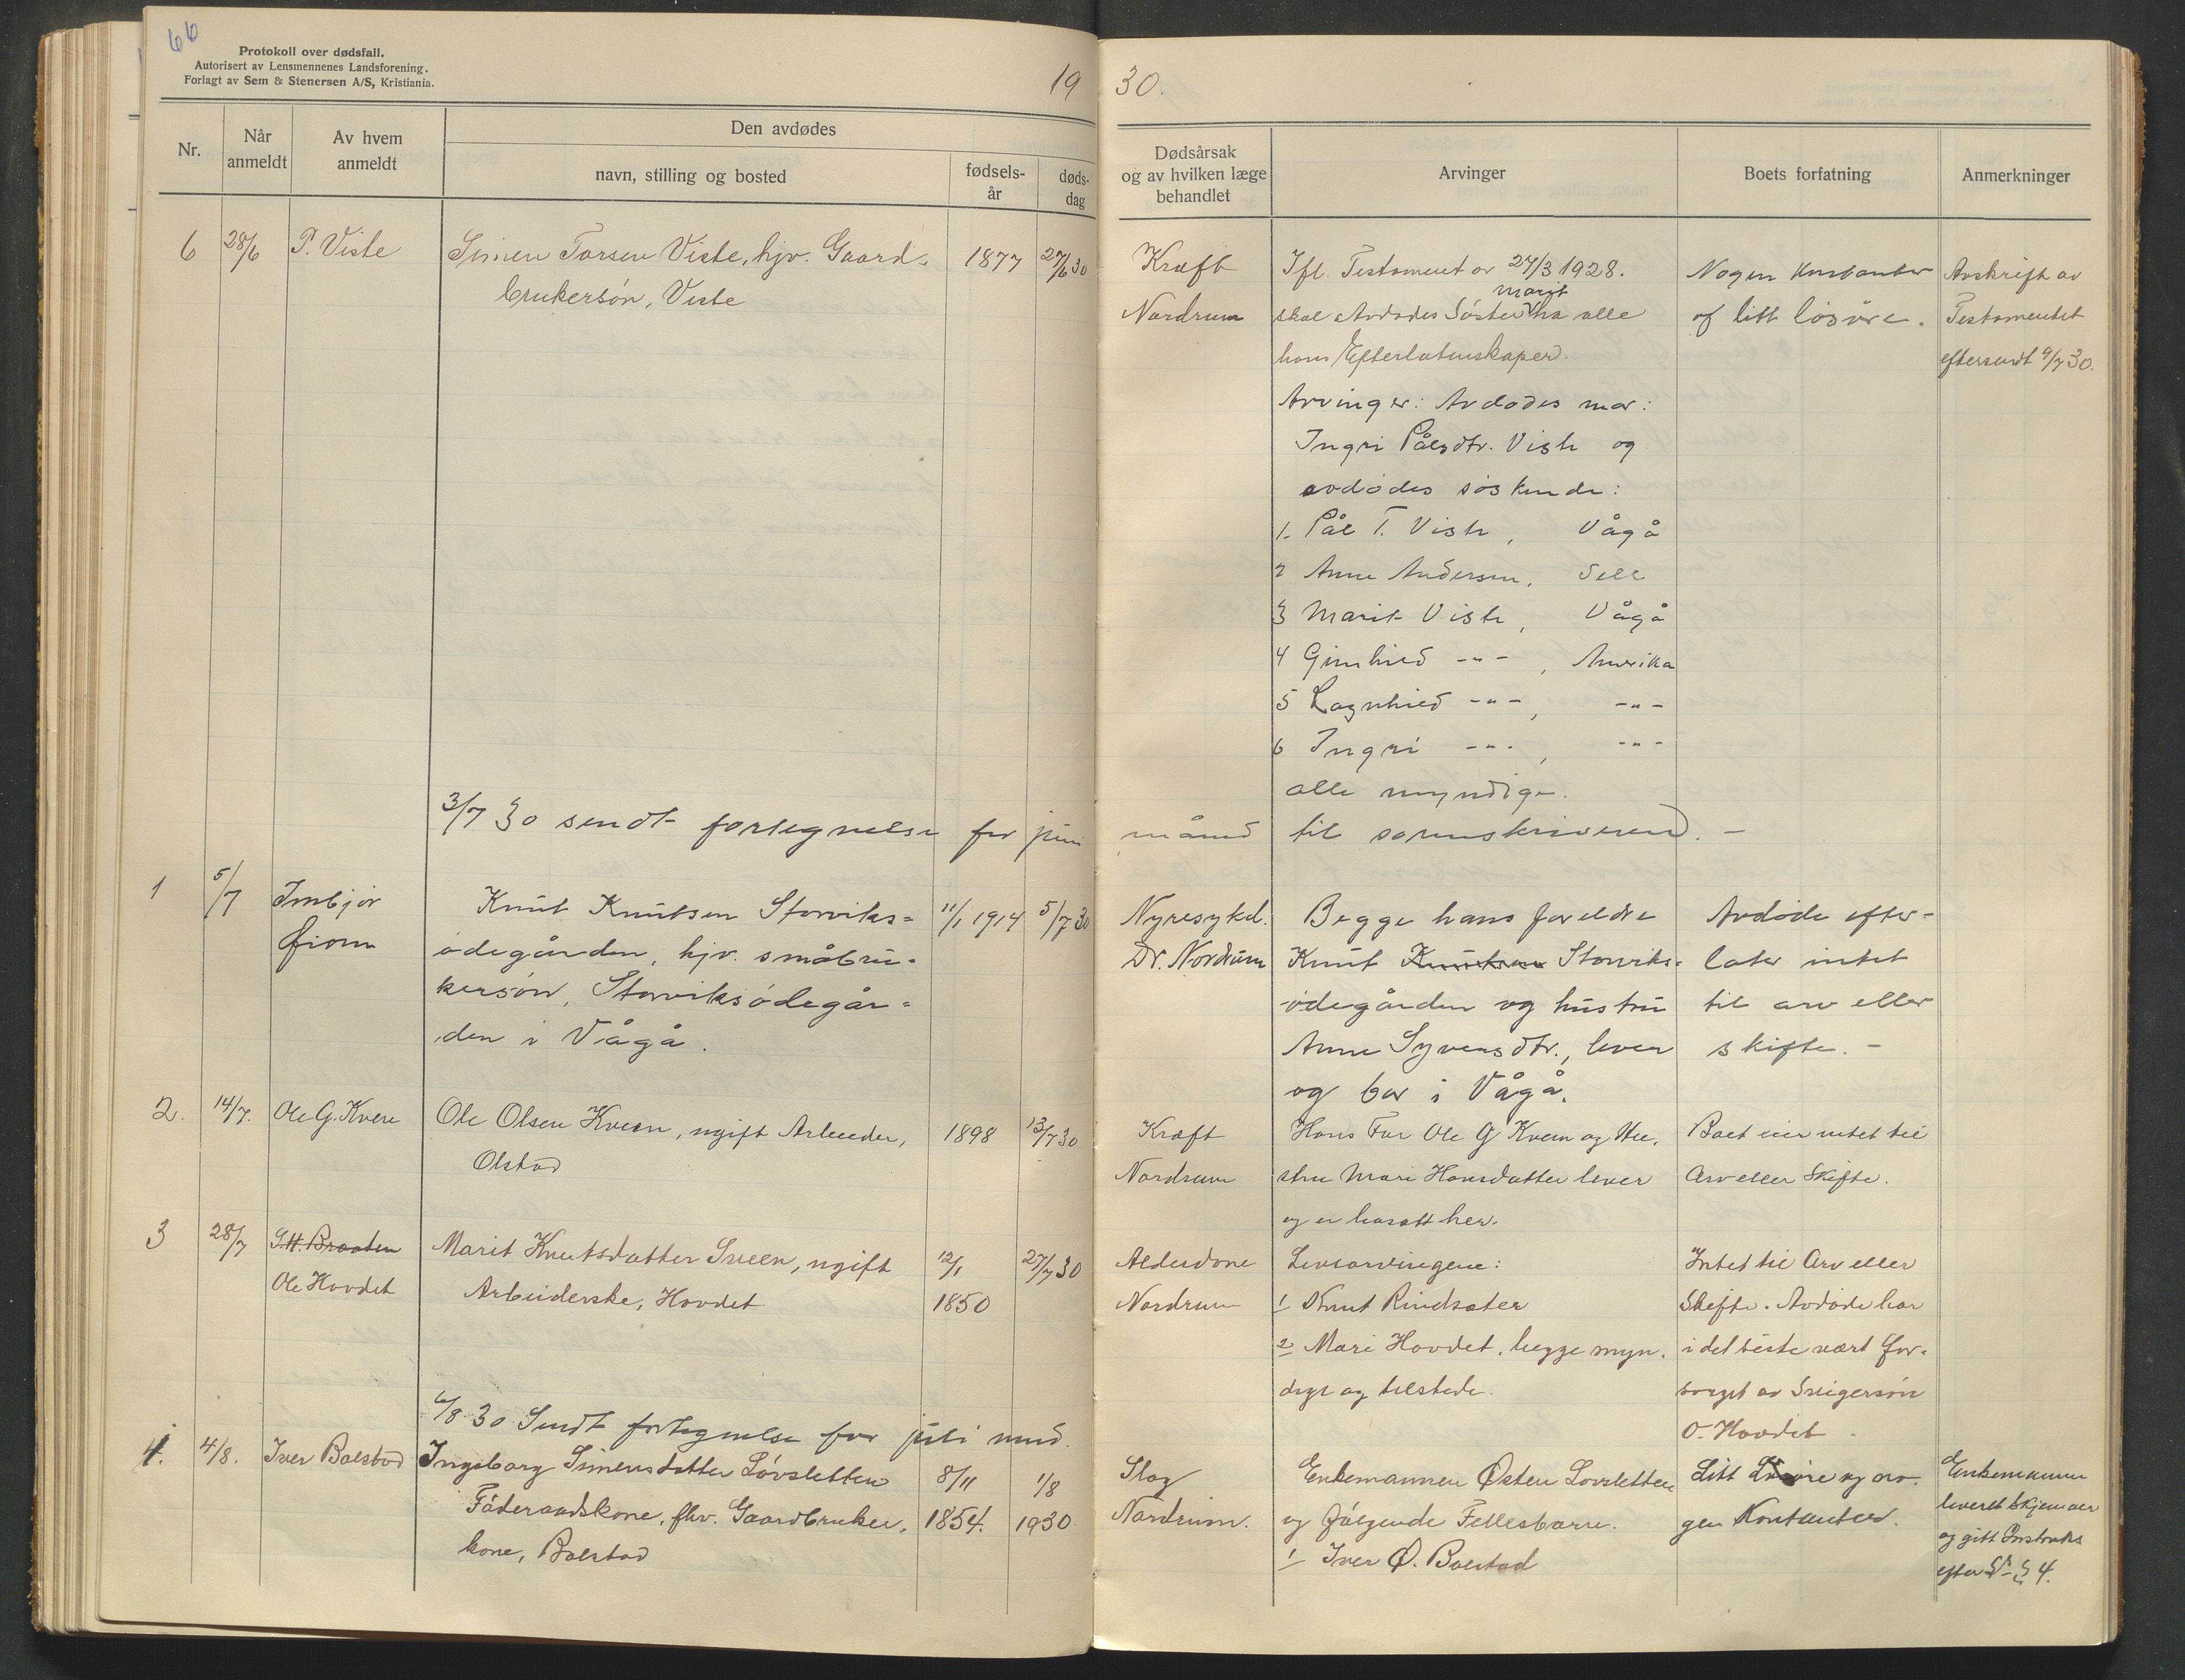 66
Protokoll over dødsfall.
Autorisert av Lensmennenes Landsforening.
Forlagt av Sem & Stenersen A/S, Kristiania.
19
30.
Nr.
Når anmeldt
Av hvem anmeldt
Den avdødes
navn, stilling og bosted
fødsels-år
døds-dag
Dødsårsak og av hvilken læge behandlet
Arvinger
Boets forfatning
Anmerkninger
6
28/6
P. Viste
Simen Torsen Viste, hjv. Gaard-
brukersøn, Viste
1877
27/6 30
Kræft
Nordrum
Ifl. Testament av 27/3 1928.
skal Avdødes Søster Marit ha alle
hans Efterlatenskaper.
Arvinger: Avdødes mor:
Ingri Pålsdtr. Viste og
avdødes søskende:
1. Pål T. Viste, Vågå
2 Anne Andersen, Sell
3 Marit Viste, Vågå
4 Gunhild -"-, Amerika
5 Ragnhild -"-, -"-
6 Ingri -"-, -"-
alle myndige.
Nogen kontanter
og litt løsøre.
Avskrift av
Testamentet
eftersendt 9/7 30.
3/7 30 sendt fortegnelse for juni måned til sorenskriveren. -
1
5/7
Imbjør
Øiom
Knut Knutsen Storviks=
ødegården, hjv. småbru-
kersøn, Storviksødegår=
den i Vågå.
11/1 1914
5/7 30
Nyresykd.
Dr. Nordrum
Begge hans foreldre
Knut Knutsen Storviks-
ødegården og hustru
Anne Syversdtr., lever
og bor i Vågå.
Avdøde efter-
later intet
til arv eller
skifte. -
2.
14/7.
Ole G. Kveen
Ole Olsen Kveen, ugift Arbeider,
Olstad
1898
13/7 30
Kræft
Nordrum
Hans Far Ole G Kveen og Hu-
stru Mari Hansdatter lever
og er bosatt her.
Boet eier intet til
Arv eller Skifte.
3
28/7
S.H. Braaten
Ole Hovdet
Marit Knutsdatter Sveen, ugift
Arbeiderske, Hovdet
12/1
1850
27/7 30
Alderdom
Nordrum
Livsarvingene:
1 Knut Rindsæter
2 Mari Hovdet, begge myn-
dige og tilstede.
Intet til Arv eller
Skifte. Avdøde har
i det siste vært for-
sørget av Svigersøn
O. Hovdet.
6/8 30 Sendt fortegnelse for juli mnd.
1.
4/8.
Iver Bolstad
Ingeborg Simensdatter Løvsletten
Føderaadskone, fhv. Gaardbruker-
kone, Bolstad
8/11
1854.
1/8
1930
Slag
Nordrum.
Enkemannen Østen Løvsletten
og følgende Fellesbarn.
1 Iver Ø. Bolstad
Litt Løsøre og no-
gen Kontanter.
Enkemannen
levert Skjemaer
og gitt Instruks
efter § 4.